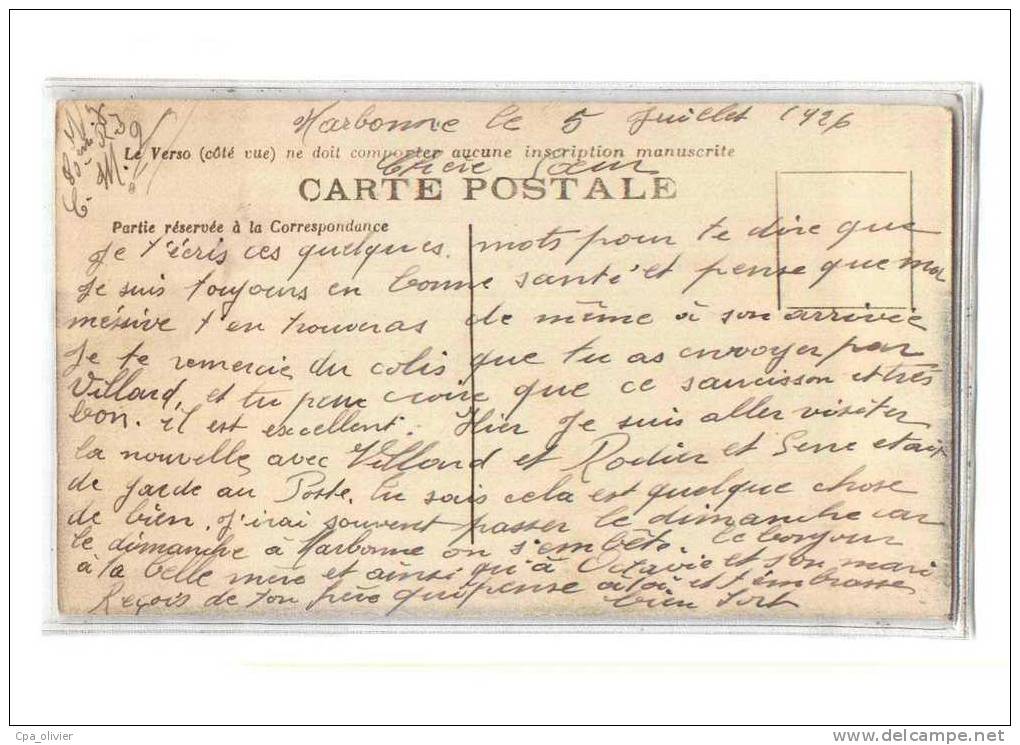 Narbonne le 5 Juillet 1926
Le Verso (côté vue) ne doit comporter aucune inscription manuscrite
Chère Sœur
CARTE POSTALE
Partie réservée à la Correspondance
Je t'écris ces quelques mots pour te dire que
Je suis toujours en bonne santé et pense que ma
méssive t'en trouveras de même à son arrivée
Je te remercie du colis que tu as envoyer par
Villard, et tu peux croire que ce saucisson et très
bon. il est excellent. Hier Je suis aller visiter
la nouvelle, avec Villard et Rodier et Serre etait
de garde au Poste. tu sais cela est quelque chose
de bien. J'irai souvent passer le dimanche car
le dimanche à Narbonne on s'embête. le bonjour
à ta belle mère et ainsi qu'à Octavie et son mari
Reçois de ton frère qui pense à toi et t'embrasse
bien fort
Cpa_olivier
www.delcampe.net